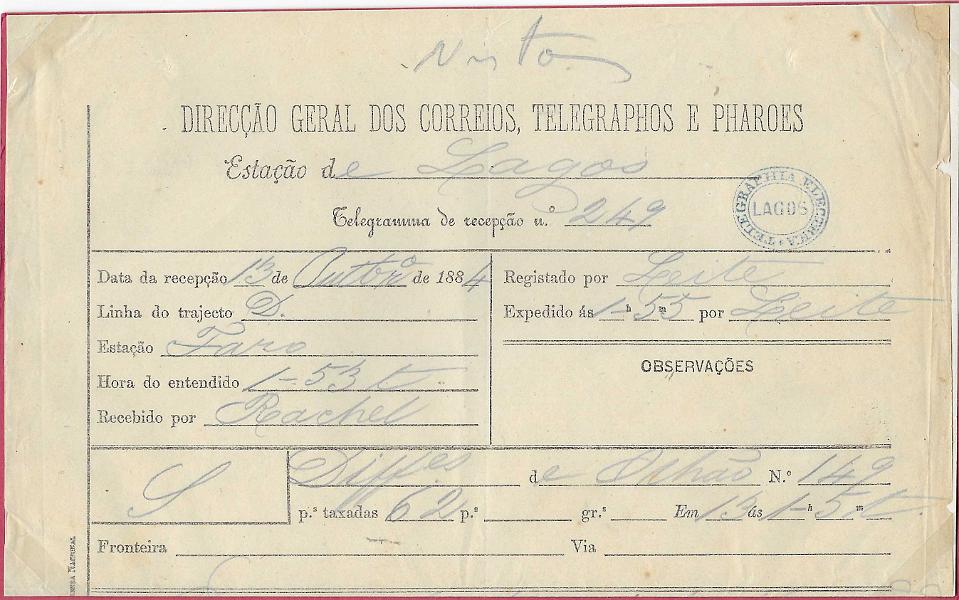 Visto
DIRECÇÃO GERAL DOS CORREIOS, TELEGRAPHOS E PHAROES
Estação de Lagos
Telegramma de recepção n.º 249
TELEGRAPHIA ELECTRICA
LAGOS
Data da recepção 13 de Outbrº de 1884
Linha do trajecto D.
Estação Faro
Hora do entendido 1-53 t.
Recebido por Rachel
Registado por Leite
Expedido ás 1-h 55 m por Leite
OBSERVAÇÕES
S
Diff.es de Olhão N.º 149
p.ª taxadas 62 p.ª gr.ª Em 13 ás 1-h 5 t m
Fronteira Via
NACIONAL